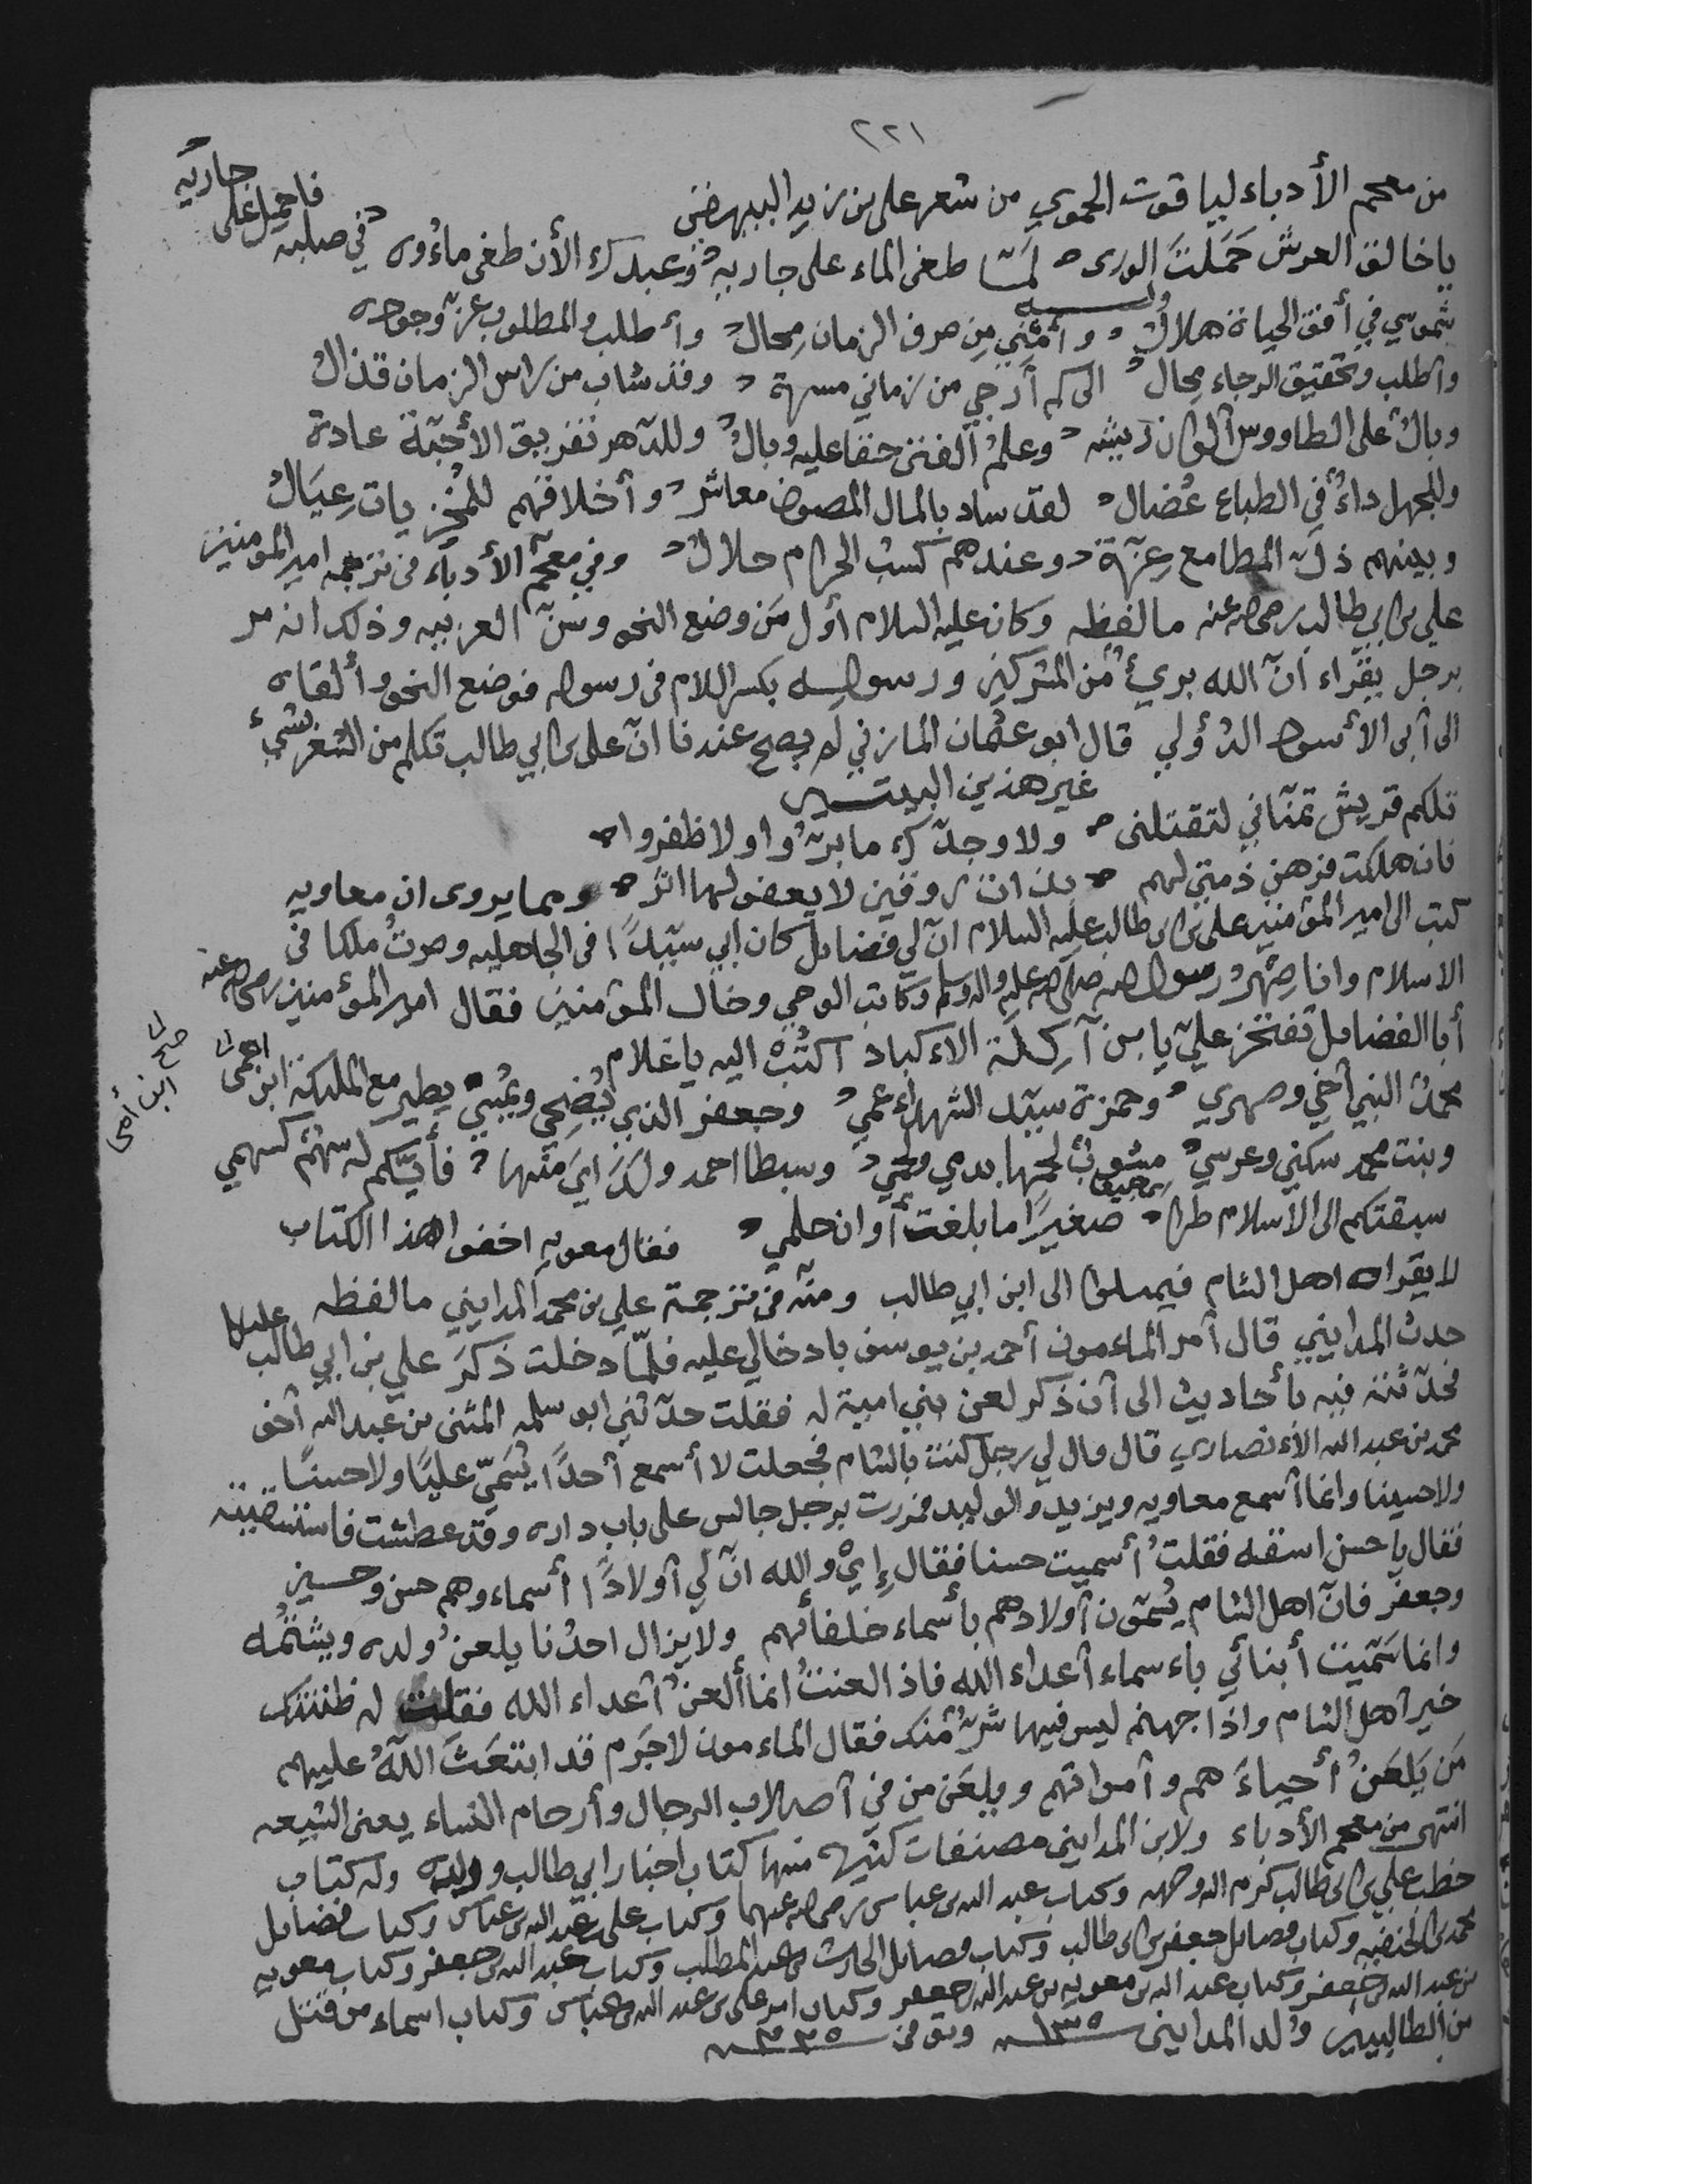 ٢٢١
من معجم الأدباء لياقوت الحموي من شعر علي بن زيد البيهقي
يا خالق العرش حَمَلتَ الورى لمّا طغى الماء على جاريه وعبدك الأن طغى ماءوه في صلبه فاحمل على جاريه
وله
شموسي في أفق الحياة هلال وأمني من صرف الزمان محال وأطلب والمطلوب عزّ وجوده
وأطلب وتحقيق الرجاء محال الى كم أرجي من زماني مسرة وقد شاب من راس الزمان قذال
وبال على الطاووس ألوان ريشه وعلم الفتى حقا عليه وبال وللدهر تفريق الأحبّة عادة
وللجهل داءٌ في الطباع عُضال لقد ساد بالمال المصون معاشر وأخلاقهم للمخزيات عِيَال
وبينهم ذلّ المطامع عِزّة وعندهم كسب الحرام حلال وفي معجم الأدباء في ترجمه امير المومنين
علي بن ابي طالب رضي الله عنه ما لفظه وكان عليه السلام أول مَن وضع النحو وسنّ العربيه وذلك انه مر
برجل يقراء انّ الله بريءٌ من المشركين ورسوله بكسر اللام في رسوله فوضع النحو وألقاه
الى أبى الأسود الدؤلي قال ابو عثمان المازني لم يصح عندنا انّ علي بن ابي طالب تكلم من الشعر بشيء
غير هذين البيتين
تلكم قريش تمنّاني لتقتلني ولا وجدّك ما برّوا ولا ظفروا
فان هلكت فرهن ذمتي لهم بذات روقين لا يعفو لها اثر ومما يروى ان معاويه
كتب الى امير المؤمنين علي بن ابي طالب عليه السلام انّ لي فضايل كان أبي سيّدًا في الجاهليه وصرتُ ملكا في
الاسلام وانا صِهْر رسول الله صلى الله عليه واله وسلم وكاتب الوحي وخال المؤمنين فقال امير المؤمنين رضي الله عنه
أبالفضايل تفتخر عليّ يا ابن آكِلَة الاكباد اكتُبْ اليه يا غلام
محمدُ النبي أخي وصهري وحمزة سيّد الشهداء عمي وجعفر الذي يُضحِي ويُمسِي يطير مع الملائكة ابن امي
وبنت محمد سكني وعرسي مشوبٌ لحمها بدمي ولحمي وسبطا احمد ولداي منها فأيّكم له سهم كسهمي
سبقتكم الى الاسلام طرا صغيرًا ما بلغت أوان حلمي فقال معويه اخفوا هذا الكتاب
لا يقراه اهل الشام فيميلوا الى ابن ابي طالب ومنه في ترجمة علي بن محمد المدايني ما لفظه
حدث المدايني قال أمر الماءمون أحمد بن يوسف بادخالي عليه فلمّا دخلت ذكرَ علي بن ابي طالب
فحدّثته فيه بأحاديث الى أن ذكر لعن بني امية له فقلت حدّثني ابو سلمه المثنى بن عبد الله أخو
محمد بن عبد الله الأنصاري قال قال لي رجل كنت بالشام فجعلت لا أسمع أحدًا يُسَمّي عليّا ولا حسنًا
ولا حسينا وانما أسمع معاويه ويزيد والوليد فمررت برجل جالس على باب داره وقد عطشت فاستسقيته
فقال يا حسن اسقه فقلتُ أسميت حسنا فقال إيْ والله انّ لي أولادًا أسماءوهم حسن وحسين
وجعفر فانّ اهل الشام يُسمّون أولادهم بأسماء خلفائهم ولا يزال احدُنا يلعنُ ولده ويشتُمُه
وانما سَمّيت أبنائي باءسماء أعداء الله فاذا لعنتُ انما ألعنُ أعداء الله فقلت له ظننتك
خير اهل الشام واذا جهنم ليس فيها شرّ منك فقال الماءمون لا جَرَم قد ابتعَثَ اللهُ عليهم
مَن يَلعَنُ أحياءَهم وأمواتهم ويلعَن من في أصلاب الرجال وأرحام النساء يعني الشيعه
انتهى من معجم الأدباء ولابن المدايني مصنفات كثيره منها كتاب اخبار ابي طالب وولده وله كتاب
خطب علي بن ابي طالب كرم الله وجهه وكتاب عبد الله بن عباس رضي الله عنهما وكتاب علي بن عبد الله بن عباس وكتاب فضايل
محمد بن الحنفيه وكتاب فضايل جعفر بن ابي طالب وكتاب فضايل الحارث بن عبد المطلب وكتاب عبد الله بن جعفر وكتاب معويه
بن عبد الله بن جعفر وكتاب عبد الله بن معويه بن عبد الله بن جعفر وكتاب امر علي بن عبد الله بن عباس وكتاب اسماء من قتل
من الطالبيين ولد المدايني ١٣٥ وتوفى